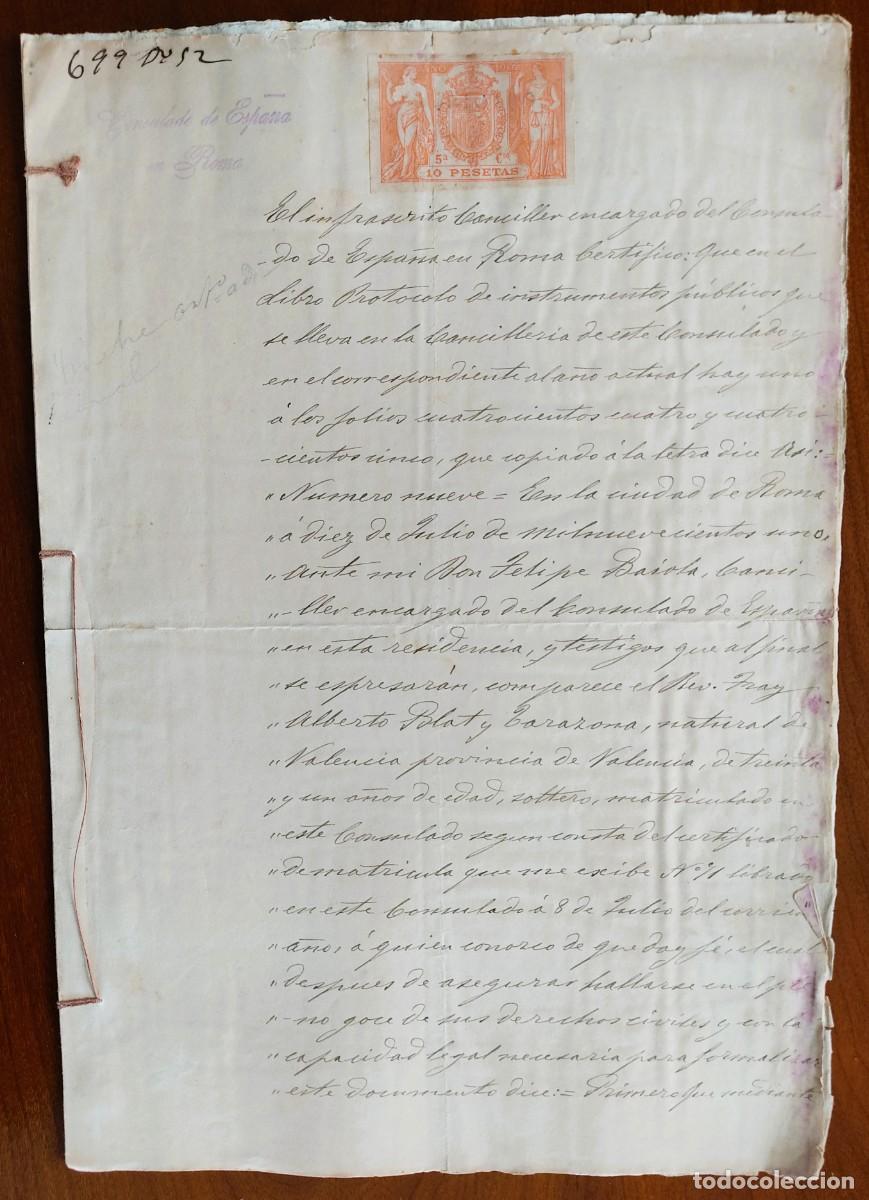 699 Dº 52
Consulado de España
en Roma
10 PESETAS
El infrascrito Canciller encargado del Consula-
-do de España en Roma Certifico: Que en el
Libro Protocolo de instrumentos públicos que
se lleva en la Cancilleria de este Consulado y
en el correspondiente al año actual hay uno
á los folios cuatrocientos cuatro y cuatro-
-cientos cinco, que copiado á la letra dice asi:=
"Numero nueve = En la ciudad de Roma
"á diez de Julio de mil nuevecientos uno,
"Ante mi Don Felipe Baiola, Canci-
"-ller encargado del Consulado de España
"en esta residencia, y testigos que al final
"se espresarán, comparece el Rev. Fray
"Alberto Blat y Tarazona, natural de
"Valencia provincia de Valencia, de treinta
"y un años de edad, soltero, matriculado en
"este Consulado segun consta del certificado
"de matricula que me exibe Nº 11 librado
"en este Consulado á 8 de Julio del corrien
"año, á quien conozco de que doy fé, el cual
"despues de asegurar hallarse en el ple
"-no goce de sus derechos civiles y con la
"capacidad legal necesaria para formalizar
"este documento dice:= Primero Que mediante
todocoleccion